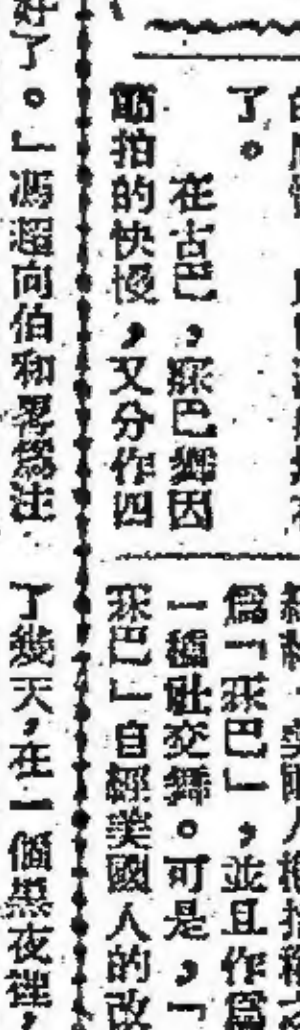 了。
在古巴，冧巴舞因
節拍的快慢，又分作四
爲「冧巴」，並且作爲
一種社交舞。可是，「
冧巴」自經美國人的改
好了。」馮超向伯和畧爲注
了幾天，在一個黑夜裡，